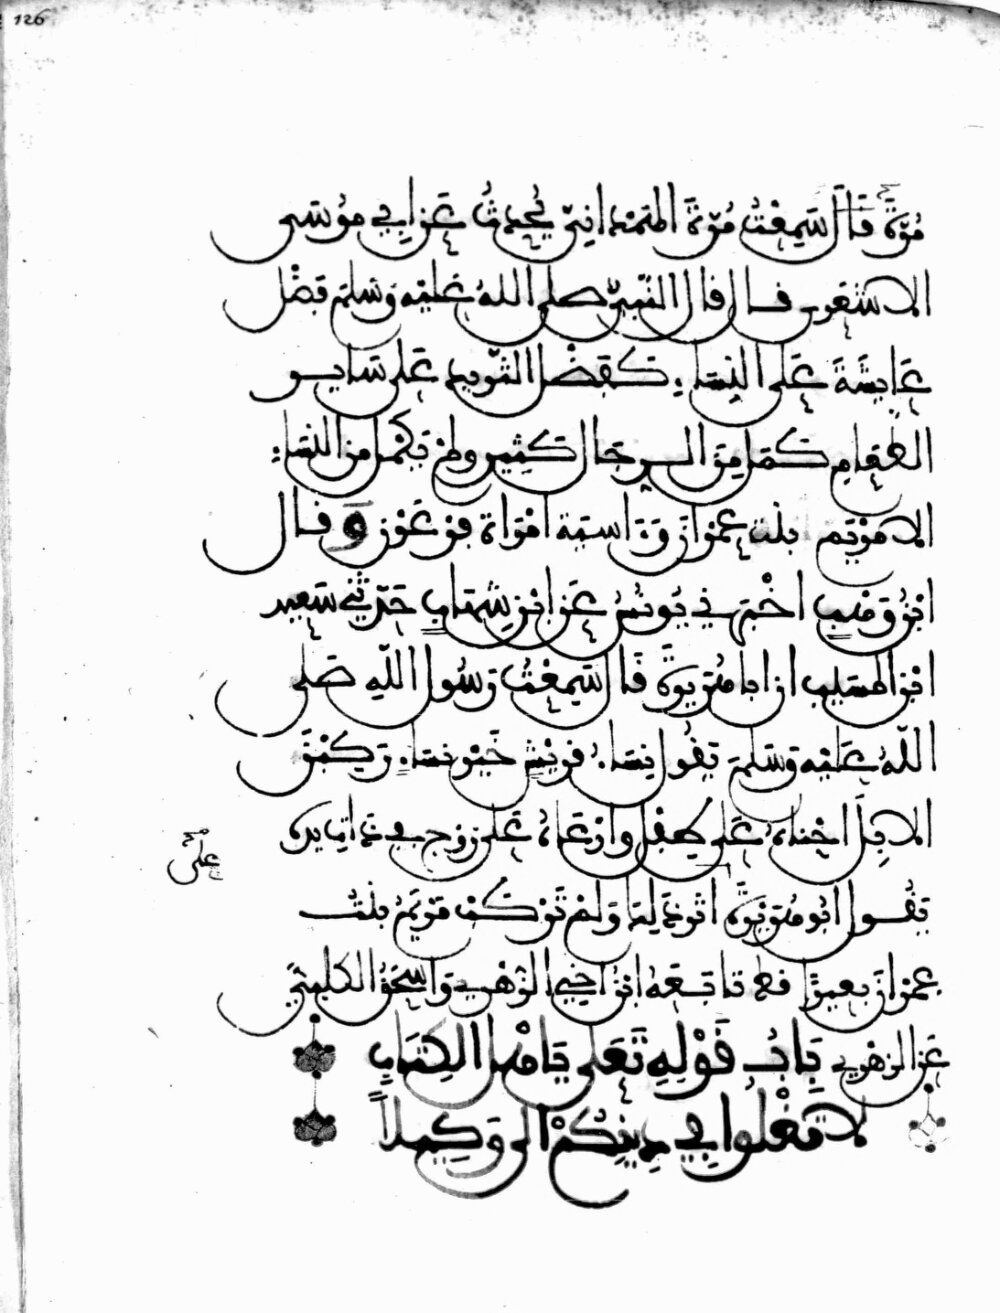 126
مُرَّةَ قَالَ سَمِعْتُ مُرَّةَ الهَمْدَانِيَّ يُحَدِّثُ عَنْ أَبِي مُوسَى
الاشعري قال قال النَّبِيُّ صلى اللهُ عليْهِ وَسَلم فَضْل
عَايِشَةَ عَلَى النِّسَاءِ كَفَضْلِ الثَّرِيدِ عَلى سَايِر
الطعَامِ كَمَلَ مِنَ الرِّجَالِ كَثِير ولمْ يَكْمُل مِنَ النسَاءِ
الا مَرْيَم بنْت عِمْرَانَ وَءَاسِيَة امْرَاة فِرْعَوْن وقَال
ابْنُ وَهْبٍ اخْبَرَنِي يُونُسُ عَن ابْنِ شِهَابٍ حَدَّثَنِي سَعِيد
ابْن المسَيِّب ان ابا هُرَيْرَةَ قَالَ سَمِعْتُ رَسُولَ اللَّهِ صَلى
اللَّهُ عَلَيْهِ وَسَلمَ يَقُول نِسَاءُ قُرَيْشٍ خَيْرُ نِسَاءٍ رَكِبْنَ
الابِلَ احْنَاهُ عَلَى طِفْل وارْعَاهُ عَلَى زَوْج في ذَات يده
على
يَقُول ابُو هُرَيْرَةَ اثْرَ ذَلِكَ وَلمْ تَرْكَبْ مَرْيَمُ بنْتُ
عِمْرَان بَعِيرًا قط تَابَعَهُ ابْنُ اخِي الزُّهْرِي وَاسْحَقُ الكَلْبِيُّ
عَن الزهْرِي بَابُ قَوْلِهِ تَعَلى يَا هْلَ الْكِتَابِ
لا تَغْلُوا فِي دِينِكُمْ الى وَكِيلاً